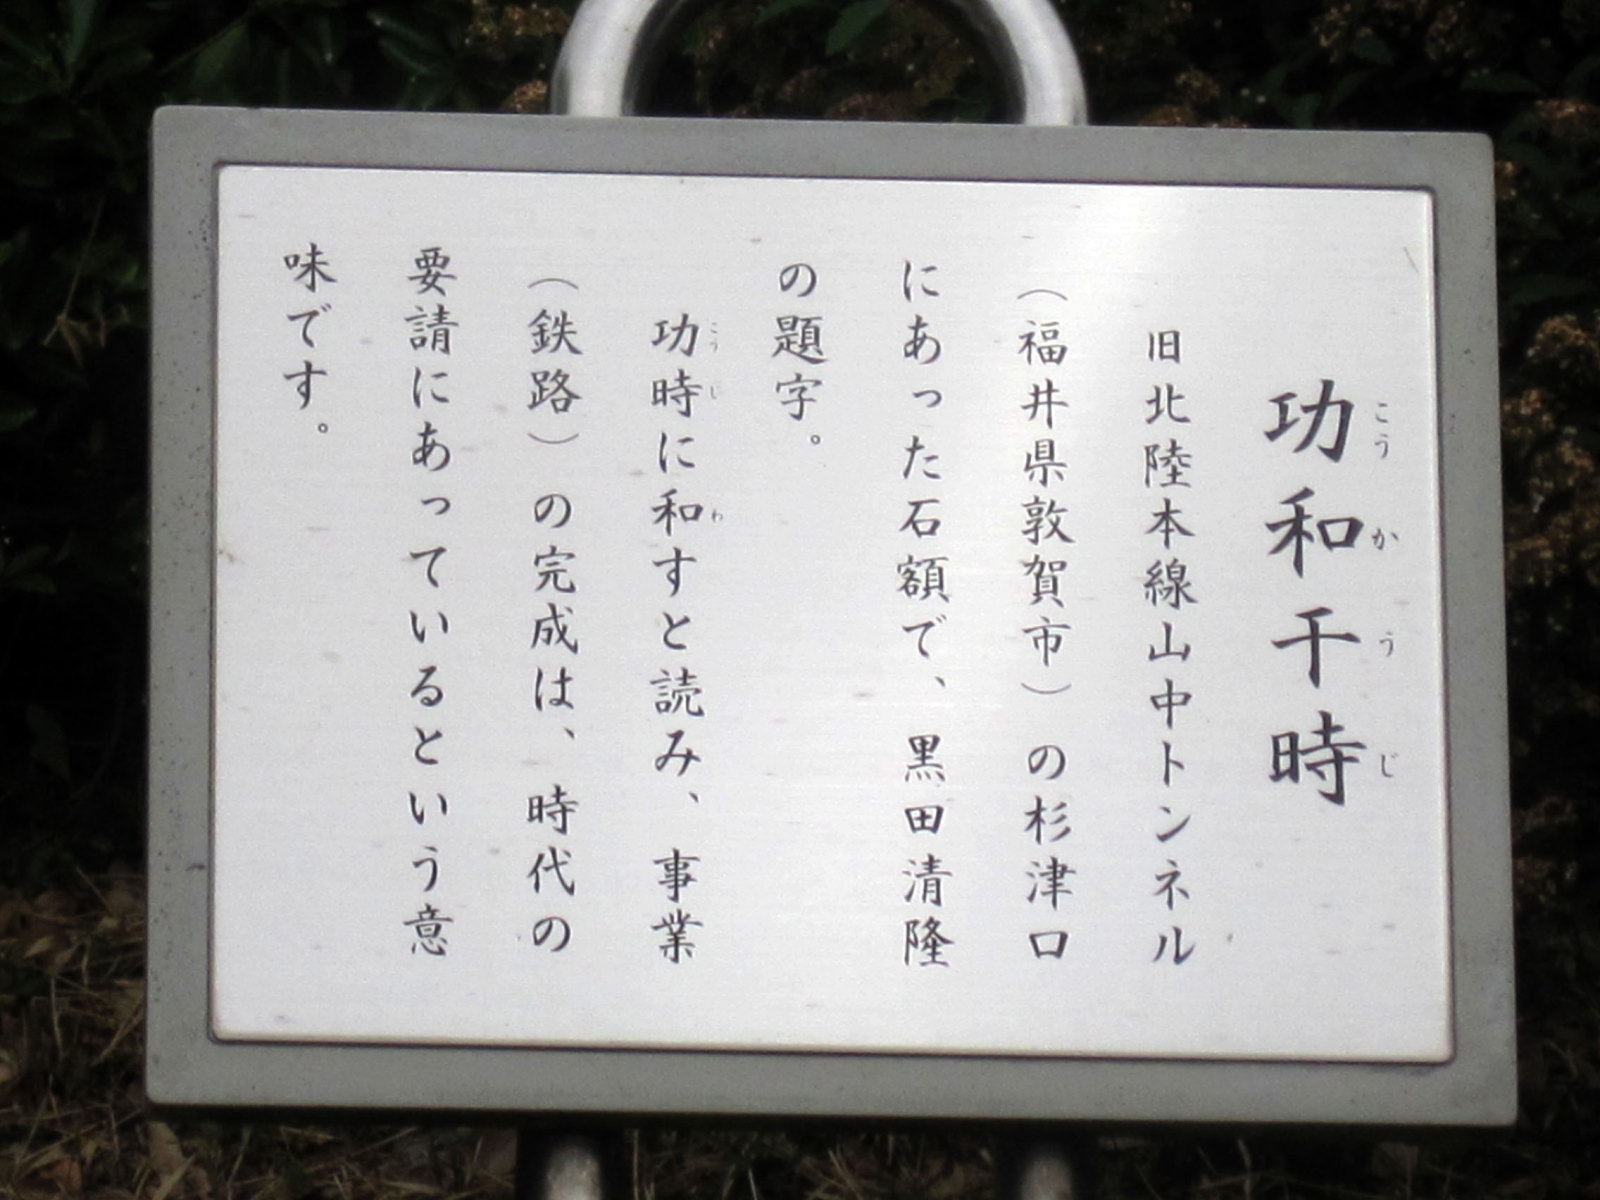 功和干時
こうかうじ
旧北陸本線山中トンネル
（福井県敦賀市）の杉津口
にあった石額で、黒田清隆
の題字。
功時に和すと読み、事業
こうじ わ
（鉄路）の完成は、時代の
要請にあっているという意
味です。